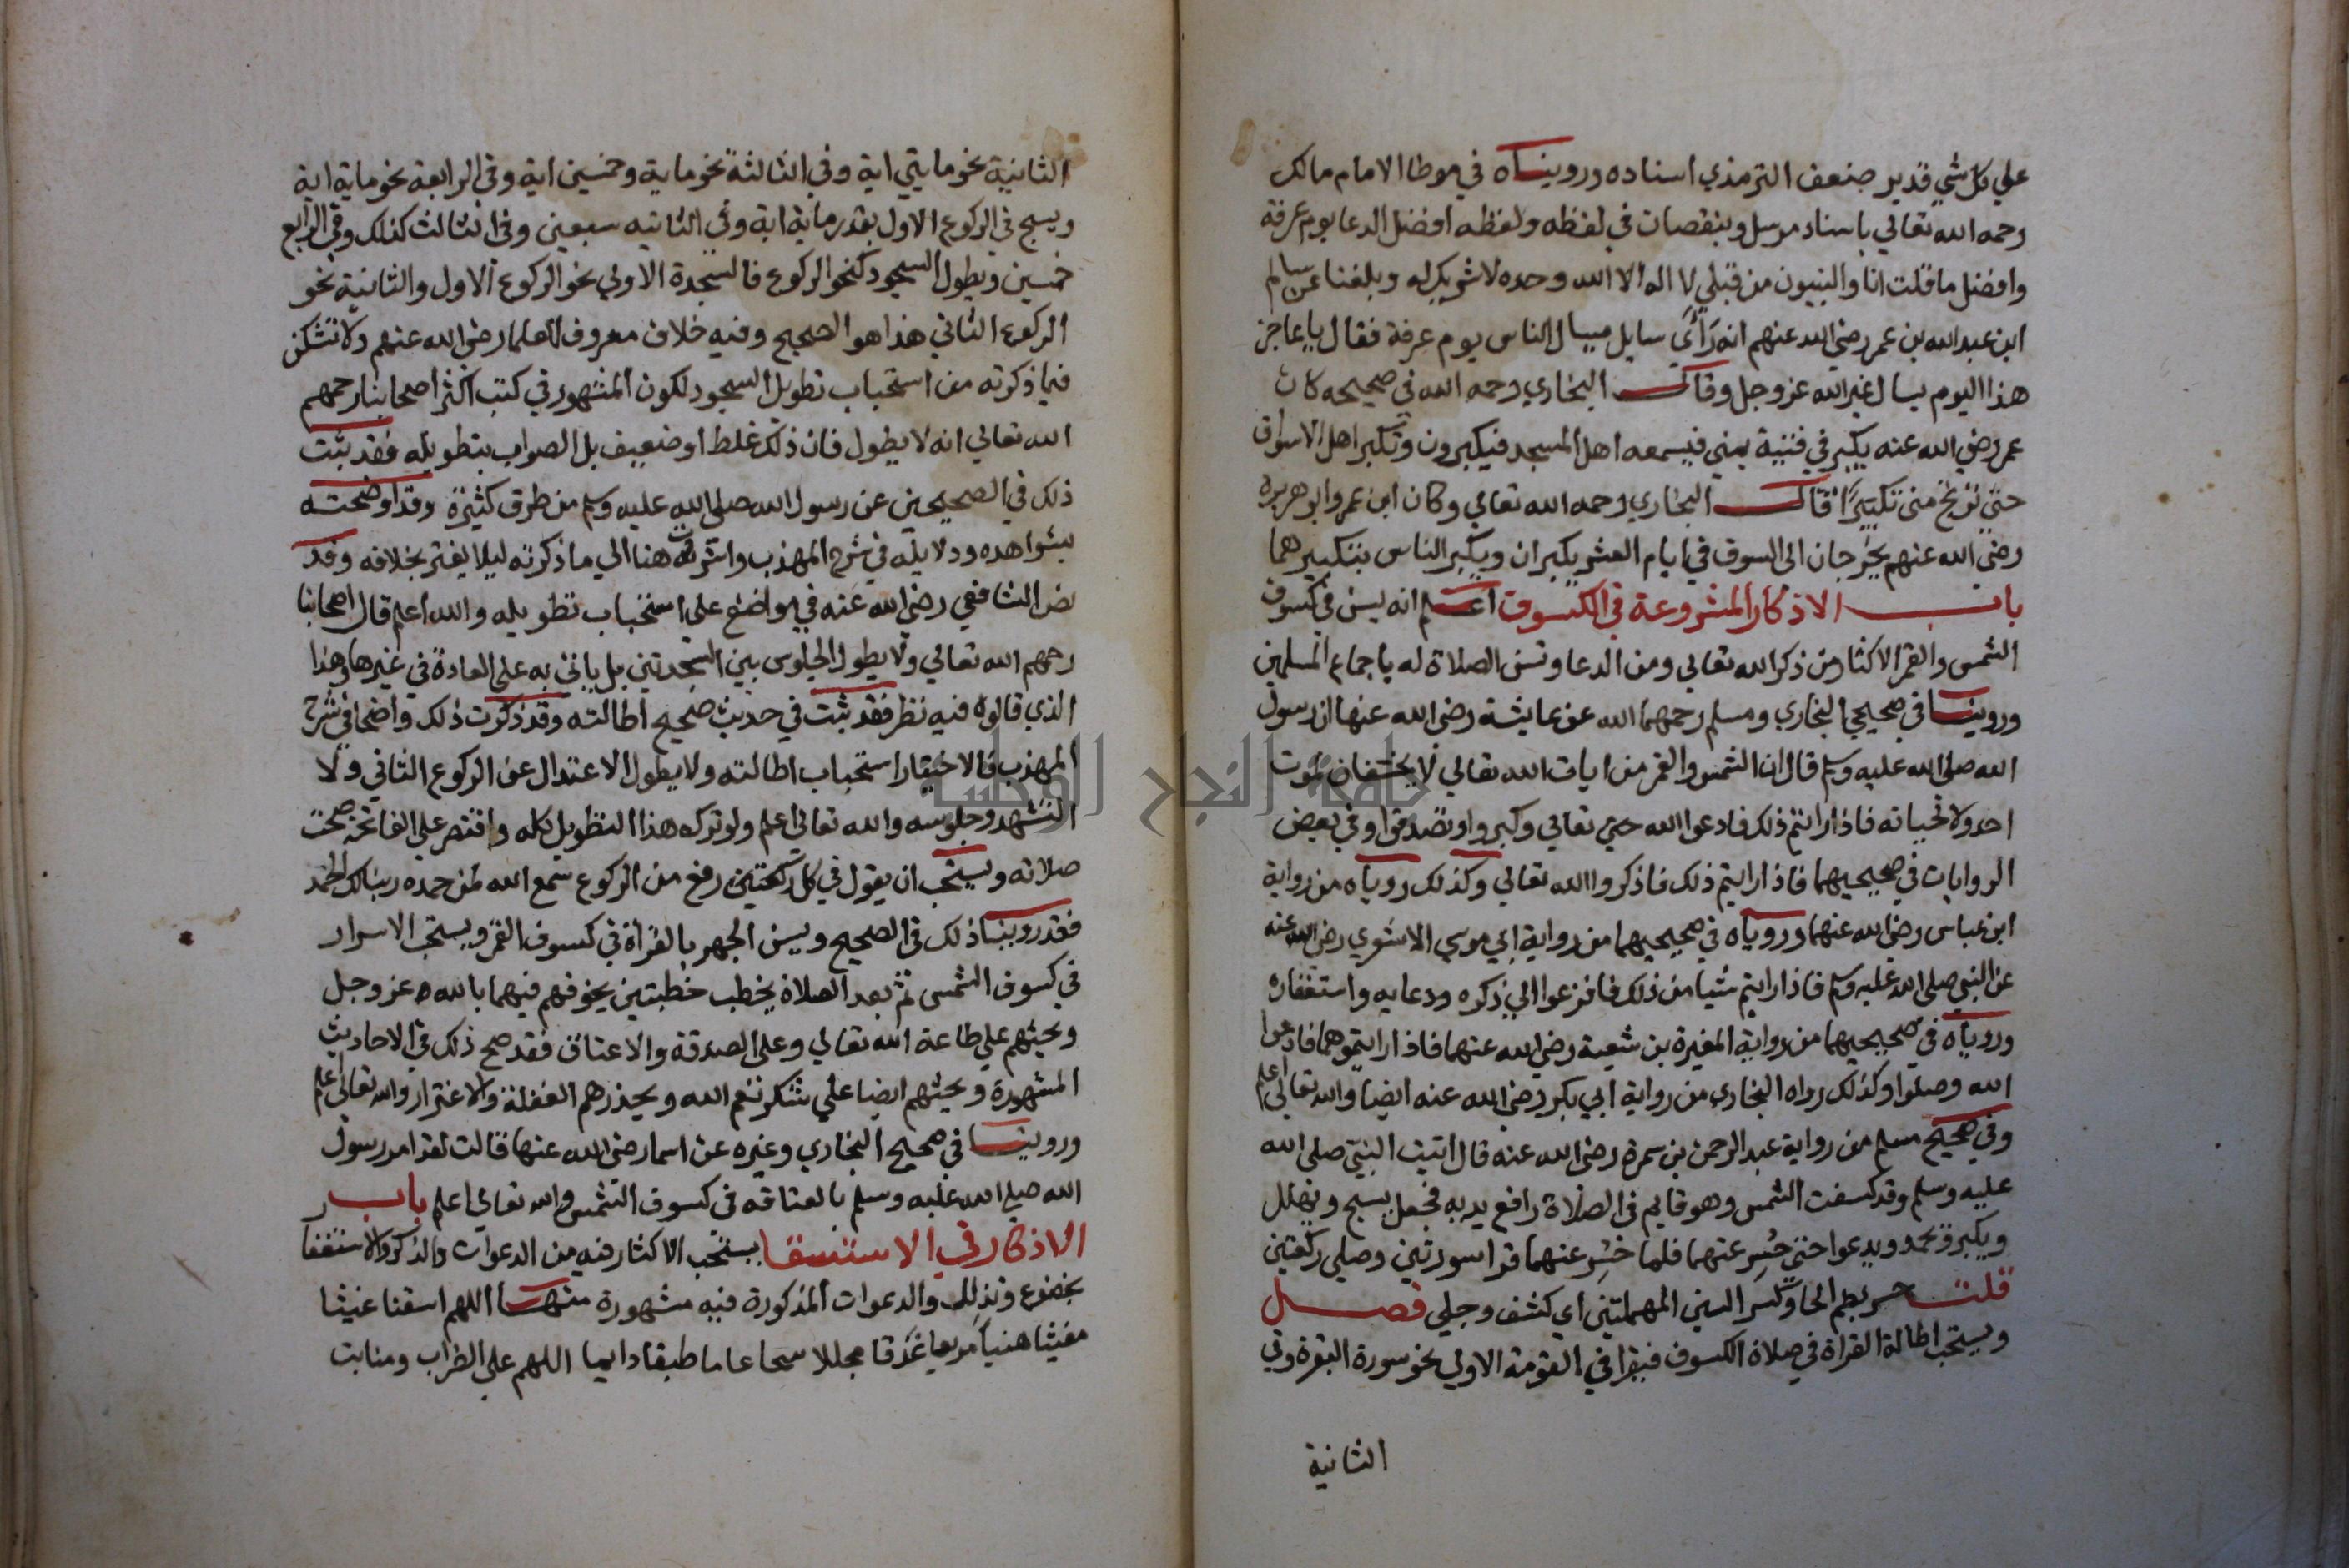 علي كل شي قدير ضعف الترمذي اسناده وروينـــاه في موطا الامام مالك
رحمه الله تعالي باسناد مرسل وبنقصان في لفظه ولفظه افضل الدعا يوم عرفة
وافضل ما قلت انا والنبيون من قبلي لا اله الا الله وحده لا شريك له وبلغنا عن سالم
ابن عبد الله بن عمر رضي الله عنهم انه رَأَي سايل يسال الناس يوم عرفة فقال يا عاجز
هذا اليوم يسال غير الله عز وجل وقال البخاري رحمه الله في صحيحه كان
عمر رضي الله عنه يكبر في قبته بمني فيسمعه اهل المسجد فيكبرون وتكبر اهل الاسواق
حتي ترتج مني تكبيرًا قال البخاري رحمه الله تعالي وكان ابن عمر وابو هريرة
رضي الله عنهم يخرجان الي السوق في ايام العشر يكبران ويكبر الناس بتكبيرهما
باب الاذكار المشروعة في الكسوف اعلم انه يسن في كسوف
الشمس والقمر الاكثار من ذكر الله تعالي ومن الدعا وتسن الصلاة له باجماع المسلمين
وروينا في صحيحي البخاري ومسلم رحمهما الله عن عايشة رضي الله عنها ان رسول
الله صلي الله عليه وسلم قال ان الشمس والقمر من ايات الله تعالي لا يخسفان لموت
احد ولا لحياته فاذا رايتم ذلك فادعوا الله حتي تعالي وكبروا وتصدقوا وفي بعض
الروايات في صحيحيهما فاذا رايتم ذلك فاذكروا الله تعالي وكذلك رويناه من رواية
ابن عباس رضي الله عنهما ورويناه في صحيحيهما من رواية ابي موسي الاشعري رضي الله عنه
عن النبي صلي الله عليه وسلم فاذا رايتم شيا من ذلك فافزعوا الي ذكره ودعايه واستغفاره
ورويناه في صحيحيهما من رواية المغيرة بن شعبة رضي الله عنهما فاذا رايتموهما فادعوا
الله وصلوا وكذلك رواه البخاري من رواية ابي بكر رضي الله عنه ايضا والله تعالي اعلم
وفي صحيح مسلم من رواية عبد الرحمن بن سمرة رضي الله عنه قال اتيت النبي صلي الله
عليه وسلم وقد كسفت الشمس وهو قايم في الصلاة رافع يديه فجعل يسبح ويهلل
ويكبر ويحمد ويدعوا حتي حُسِر عنهما فلما حُسِر عنهما قرا سورتين وصلي ركعتين
قلت حسر بضم الحا وكسر السين المهملتين اي كشف وجلي فصل
ويستحب اطالة القراة في صلاة الكسوف فيقرا في القومة الاولي نحو سورة البقرة وفي
الثانية
الثانية نحو مايتي اية وفي الثالثة نحو ماية وخمسين اية وفي الرابعة نحو ماية اية
ويسبح في الركوع الاول بقدر ماية اية وفي الثانيه سبعين وفي الثالث كذلك وفي الرابع
خمسين ويطول السجود كنحو الركوع فالسجدة الاولي نحو الركوع الاول والثانية نحو
الركوع الثاني هذا هو الصحيح وفيه خلاف معروف للعلما رضي الله عنهم ولا تشكن
فيما ذكرته من استحباب تطويل السجود لكون المشهور في كتب اكثر اصحابنا رحمهم
الله تعالي انه لا يطول فان ذلك غلط او ضعيف بل الصواب بتطويله فقد ثبت
ذلك في الصحيحين عن رسول الله صلي الله عليه وسلم من طرق كثيرة وقد اوضحته
بشواهده ودلايله في شرح المهذب واشرت هنا الي ما ذكرته ليلا يغتر بخلافه وقد
نص الشافعي رضي الله عنه في مواضع علي استحباب تطويله والله اعلم قال اصحابنا
رحمهم الله تعالي ولا يطول الجلوس بين السجدتين بل ياتي به علي العادة في غيرها وهذا
الذي قالوه فيه نظر فقد ثبت في حديث صحيح اطالته وقد ذكرت ذلك واضحا في شرح
المهذب فالاختيار استحباب اطالته ولا يطول الاعتدال عن الركوع الثاني ولا
التشهد وجلوسه والله تعالي اعلم ولو ترك هذا التطويل كله واقتصر علي الفاتحة صحت
صلاته ويستحب ان يقول في كل ركعتين رفع من الركوع سمع الله لمن حمده ربنا لك الحمد
فقد روينا ذلك في الصحيح ويسن الجهر بالقراة في كسوف القمر ويستحب الاسرار
في كسوف الشمس ثم بعد الصلاة يخطب خطبتين يخوفهم فيهما بالله عز وجل
ويحثهم علي طاعة الله تعالي وعلي الصدقة والاعتاق فقد صح ذلك في الاحاديث
المشهورة ويحثهم ايضا علي شكر نعم الله ويحذرهم الغفلة والاغترار والله تعالي اعلم
وروينا في صحيح البخاري وغيره عن اسما رضي الله عنها قالت لقد امر رسول
الله صلي الله عليه وسلم بالعتاقه في كسوف الشمس والله تعالي اعلم باب
الاذكار في الاستسقا يستحب الاكثار فيه من الدعوات والذكر والاستغفا
بخضوع وتذلل والدعوات المذكورة فيه مشهورة منها اللهم اسقنا غيثا
مغيثا هنيا مريعا غدقا مجللا سحا عاما طبقا دايما اللهم علي الظراب ومنابت
جامعة النجاح الوطنية